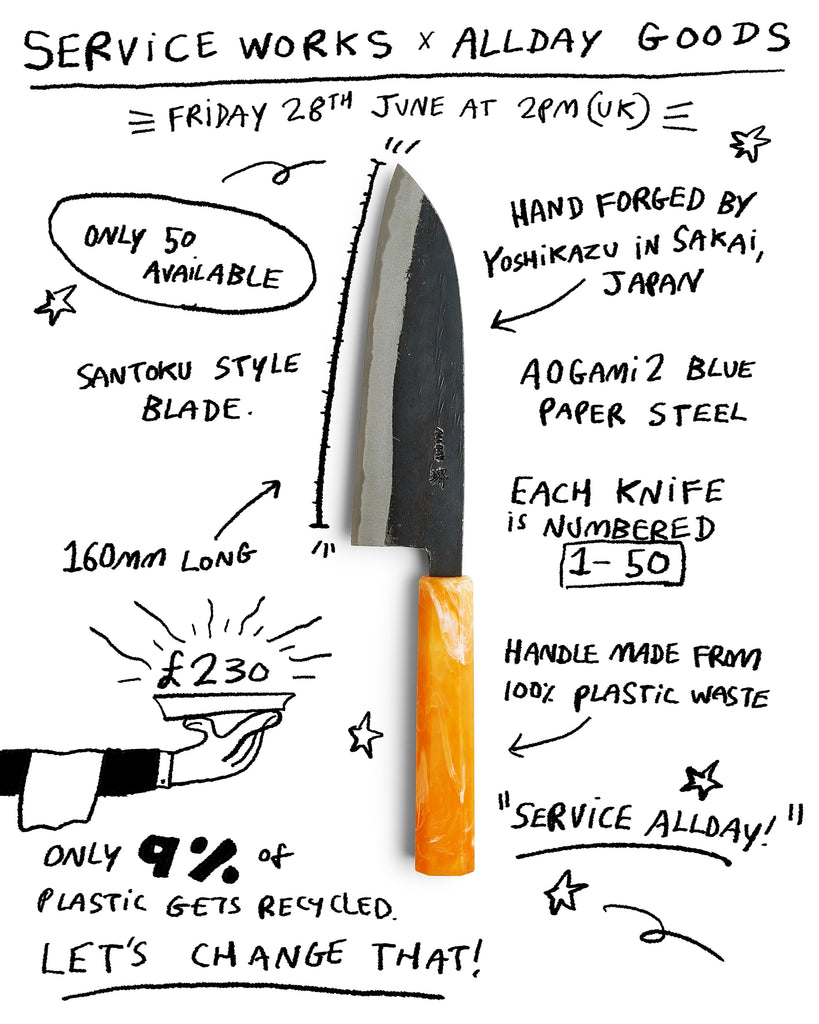 SERVICE WORKS x ALLDAY GOODS
FRIDAY 28TH JUNE AT 2PM (UK)
ONLY 50
AVAILABLE
HAND FORGED BY
YOSHIKAZU IN SAKAI,
JAPAN
SANTOKU STYLE
BLADE.
AOGAMI 2 BLUE
PAPER STEEL
160MM LONG
EACH KNIFE
IS NUMBERED
1-50
£230
HANDLE MADE FROM
100% PLASTIC WASTE
"SERVICE ALLDAY!"
ONLY 9% of
PLASTIC GETS RECYCLED.
LET'S CHANGE THAT!